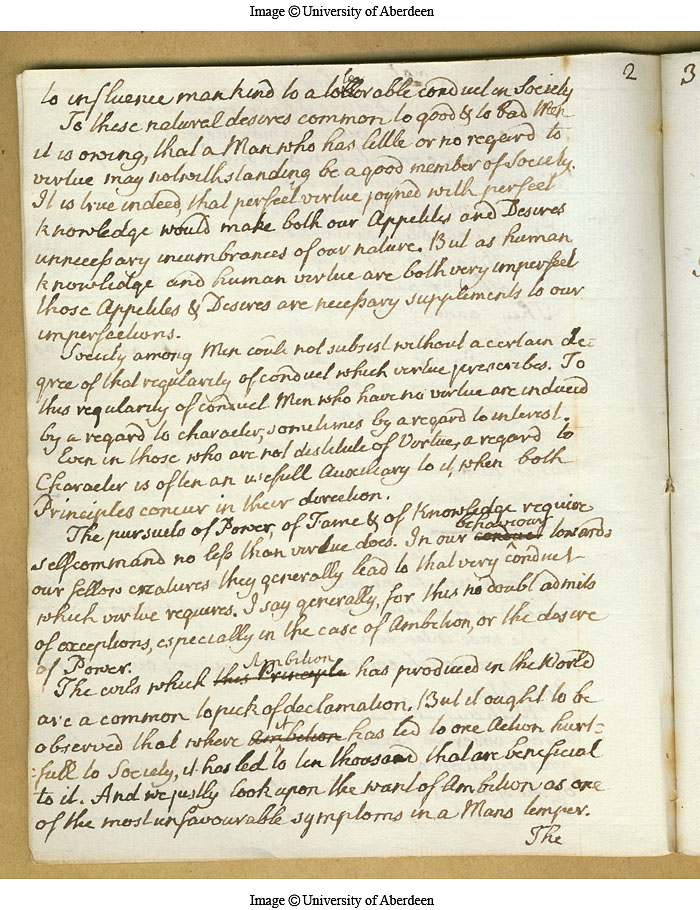 Image © University of Aberdeen
2
3
to influence mankind to a tollorable conduct in Society
To these natural desires common to good & to bad Men
it is owing, that a Man who has little or no regard to
virtue may notwithstanding be a good member of Society.
It is true indeed, that perfect virtue joyned with perfect
knowledge would make both our Appetites and Desires
unnecessary incumbrances of our nature. But as human
knowledge and human virtue are both very imperfect
those Appetites & Desires are necessary supplements to our
imperfections.
Society among Men could not subsist without a certain de-
gree of that regularity of conduct which virtue prescribes. To
this regularity of conduct Men who have no virtue are induced
by a regard to character, sometimes by a regard to interest.
Even in those who are not distitute of Virtue, a regard to
Character is often an usefull Auxiliary to it, when both
Principles concur in their direction.
The pursuits of Power, of Fame & of Knowledge require
selfcommand no less than virtue does. In our conduct behaviour towards
our fellow creatures they generally lead to that very conduct
which virtue requires. I say generally, for this no doubt admits
of exceptions, especially in the case of Ambition, or the desire
of Power.
The evils which this Principle Ambition has produced in the World
are a common topick of declamation. But it ought to be
observed that where Ambition it has led to one Action hurt-
full to Society, it has led to ten thousand that are beneficial
to it. And we justly look upon the want of Ambition as one
of the most unfavourable symptoms in a Mans temper.
The
Image © University of Aberdeen